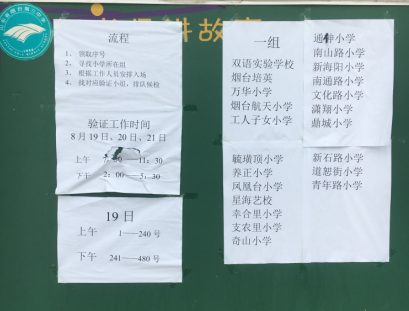 讲故事
流程
1、领取序号
2、寻找小学所在组
3、根据工作人员安排入场
4、找对应验证小组，排队候检
验证工作时间
8月19日、20日、21日
上午 30—11：30
下午 2：00—5：30
19日
上午 1——240号
下午 241——480号
一组
双语实验学校
烟台培英
万华小学
烟台航天小学
工人子女小学
通伸小学
南山路小学
新海阳小学
南通路小学
文化路小学
潇翔小学
鼎城小学
毓璜顶小学
养正小学
凤凰台小学
星海艺校
幸合里小学
支农里小学
奇山小学
新石路小学
道恕街小学
青年路小学